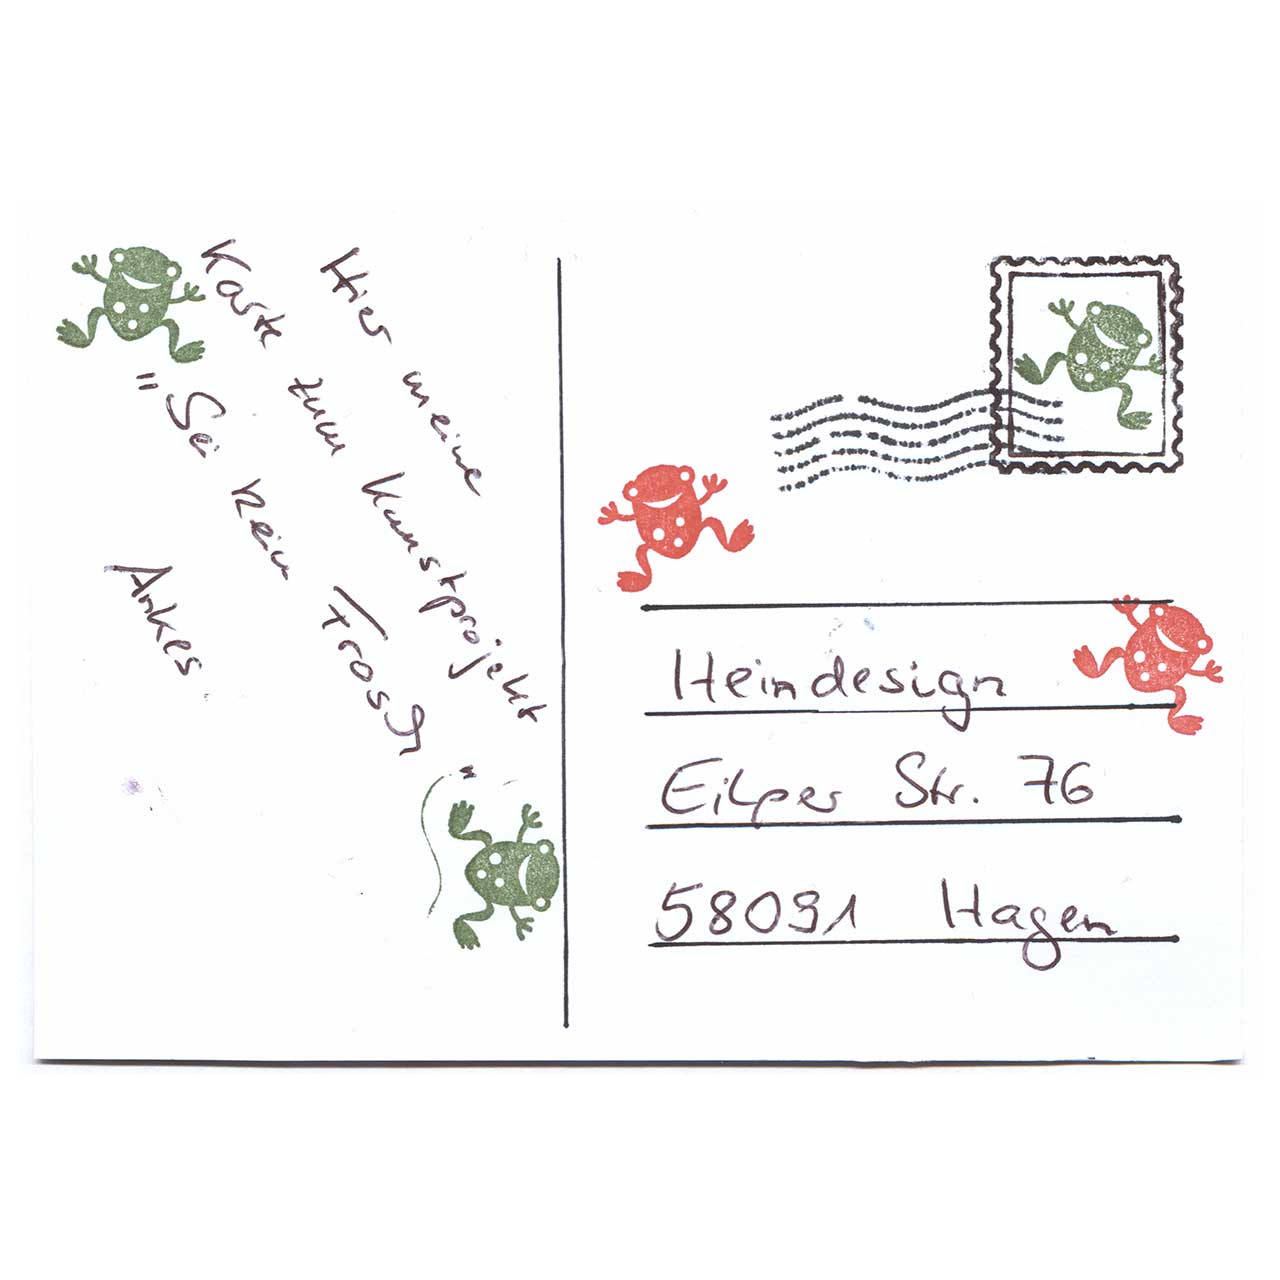 Hier meine
Karte zum Kunstprojekt
"Sei kein Frosch"
Ankes
Heindesign
Eilper Str. 76
58091 Hagen